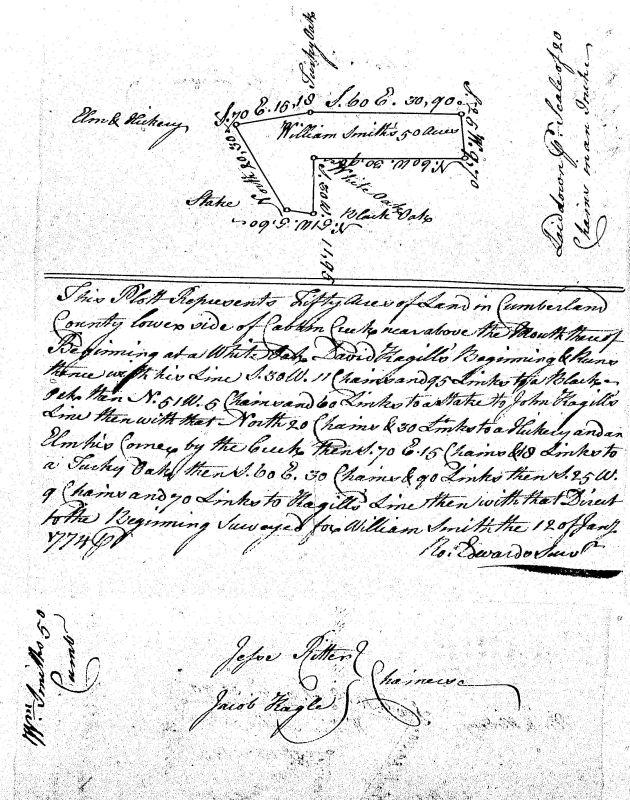 Turky Oak
Elm & Hickery
S. 70 E. 15,18
S. 60 E. 30,90
S. 25 W. 9,70
William Smith's 50 Acres
N. 60 W. 30,
North 20,30
White Oak
S. 30 W. 11,95
Stake
Black Oak
N. 51 W. 5,60
Laid down Pr. Scale of 20
Chains in an Inche
This Plott Represents Fifty Acres of Land in Cumberland
County lower side of Cabbin Creek near above the Mouth thereof
Beginning at a White Oak David Kagill's Beginning & Runs
thence with his Line S. 30 W. 11 Chains and 95 Links to a Black
Oak then N. 51 W. 5 Chains and 60 Links to a Stake by John Kagill's
Line then with that North 20 Chains & 30 Links to a Hickery and an
Elm his Corner by the Creek then S. 70 E. 15 Chains & 18 Links to
a Turky Oak then S. 60 E. 30 Chains & 90 Links then S. 25 W.
9 Chains and 70 Links to Kagill's Line then with that Direct
to the Beginning Surveyed for William Smith the 12 of Jany.
1774
Ro. Edwards Survr.
Wm. Smith's 50
Cumb
Jesse Ritter
Jacob Kagle
Chainers